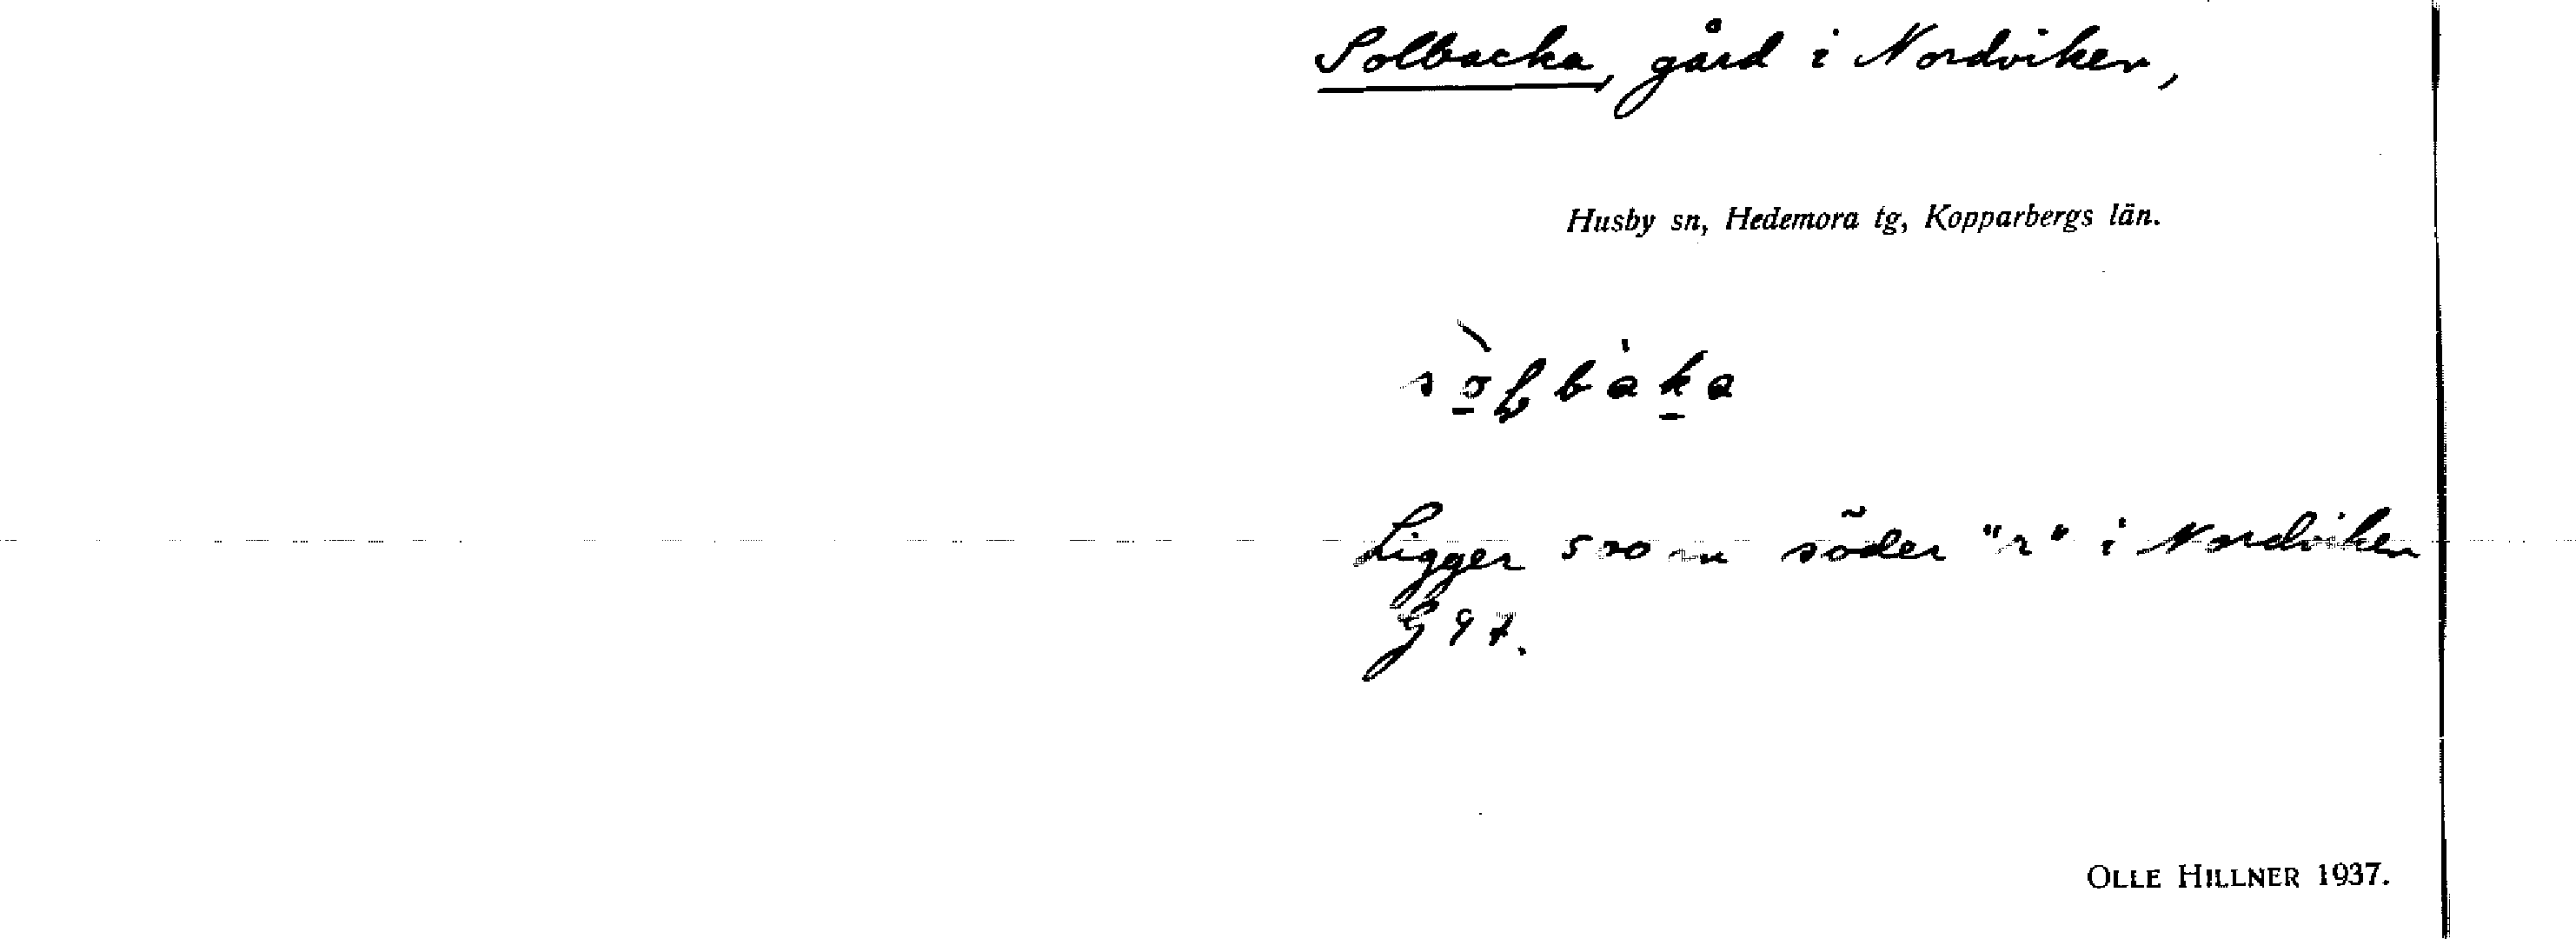 Solbacka, gård i Nordviken,
Husby sn, Hedemora tg, Kopparbergs län.
Ligger 500 m söder "r" i Nordviken
G 97.
OLLE HILLNER 1937.